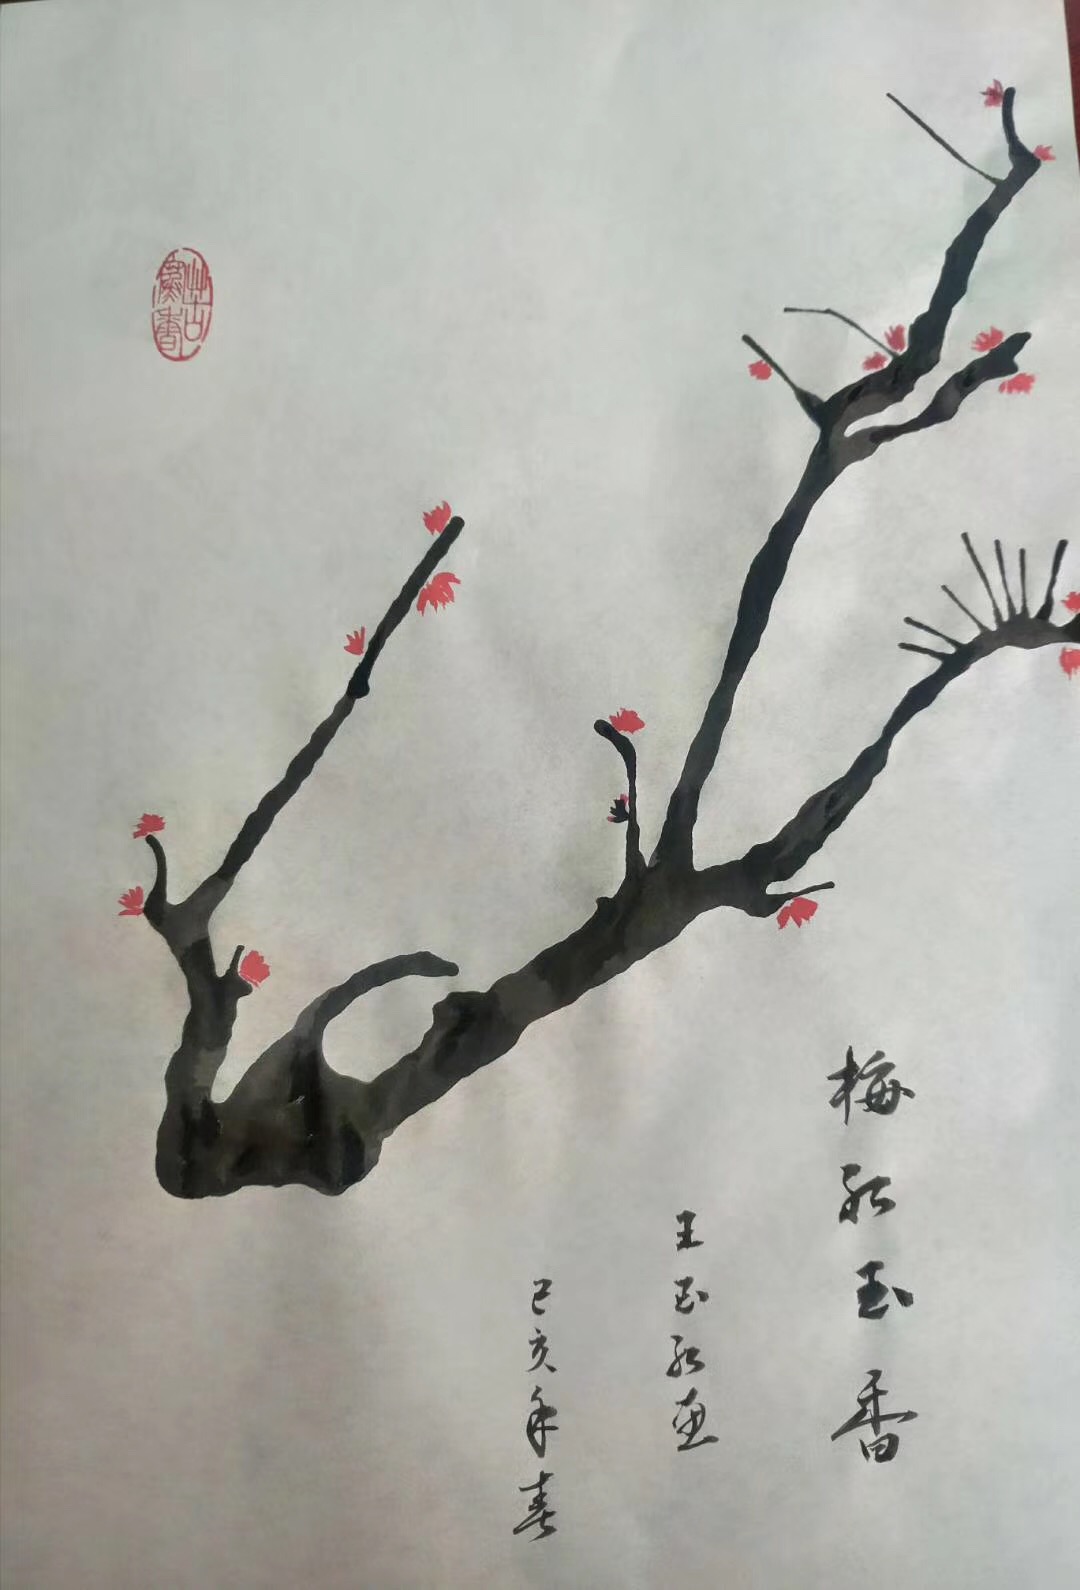 梅红玉香
王玉红画
己亥年春